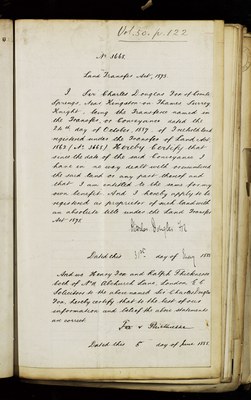 Vol. 50. p. 122
No. 1668.
Land Transfer Act, 1875.
I Sir Charles Douglas Fox of Coombe
Springs, near Kingston on Thames Surrey
Knight, being the Transferee named in
the Transfer, or Conveyance dated the
day of October, 1887, of Freehold land
registered under the Transfer of Land Act
1862 (No. 1668) Hereby Certify that
since the date of the said Conveyance I
have in no way dealt with incumbered
the said land or any part thereof and
that I am entitled to the same for my
own benefit. And I hereby apply to be
registered as proprietor of such land with
an absolute title under the Land Transfer
Act 1875.
Charles Douglas Fox
Dated this 31st day of May 188
And we Henry Fox and Ralph Thicknesse
both of No. Abchurch Lane, London, E.C.
Solicitors to the above named Sir Charles Douglas
Fox, hereby certify that to the best of our
information and belief the above statements
are correct.
Fox & Thicknesse
Dated this 5 day of June 188